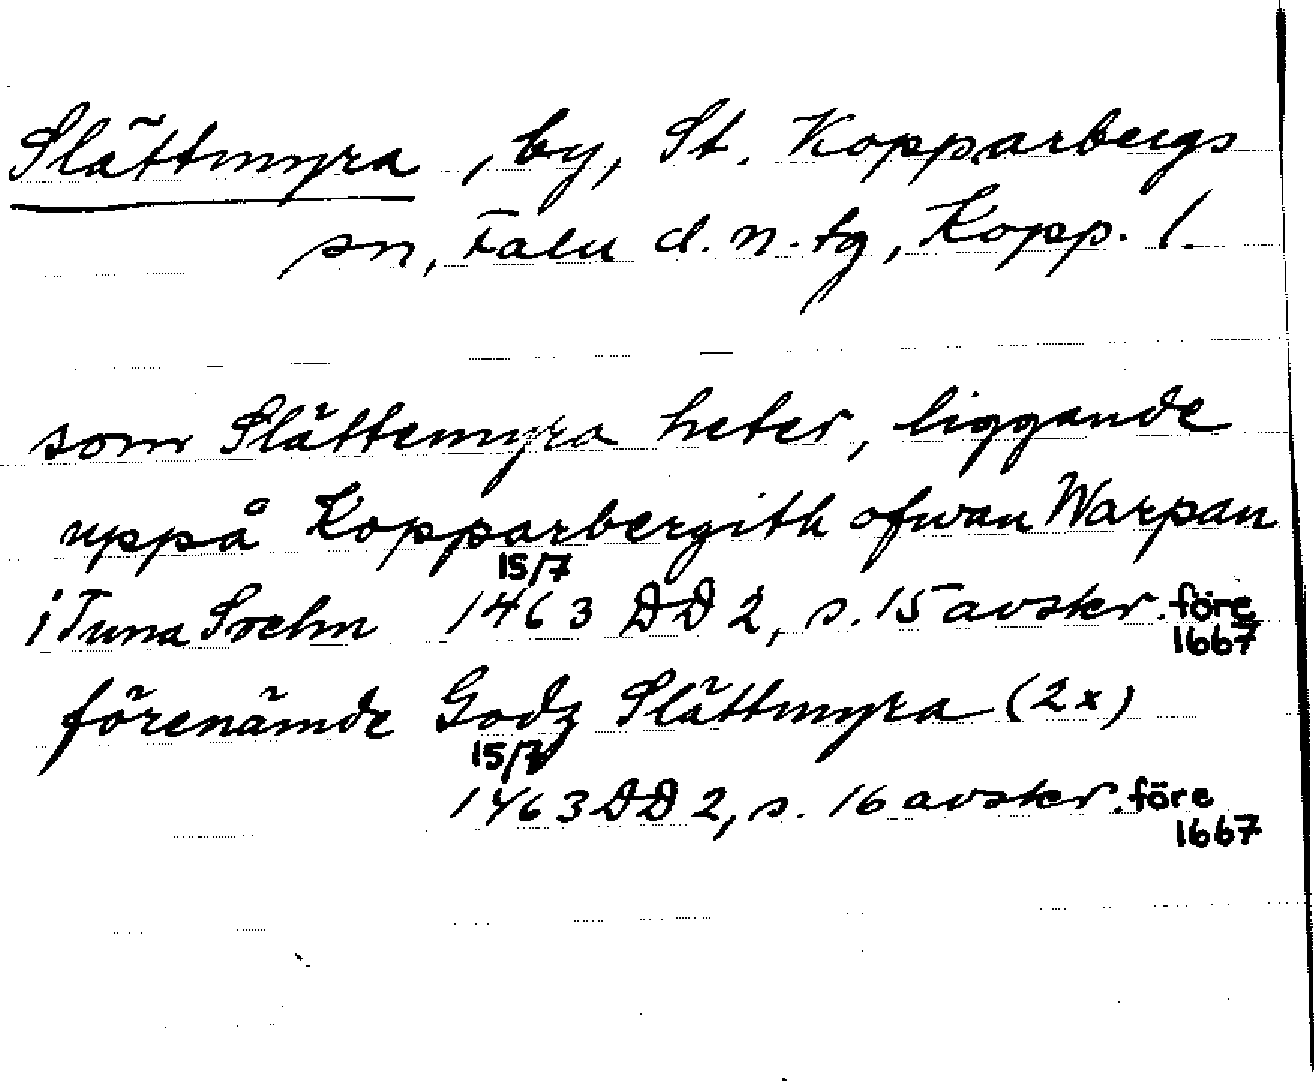 Slättmyra, by, St. Kopparbergs
sn, Falu d.n. tg, Kopp. l.
som Slättemyra heter, liggande
uppå Kopparbergith ofwan Warpan
i Tuna Sochn 15/7 1463 DD 2, s. 15 avskr. före 1667
förenämde Godz Slättmyra (2x)
15/7
1463 DD 2, s. 16 avskr. före
1667